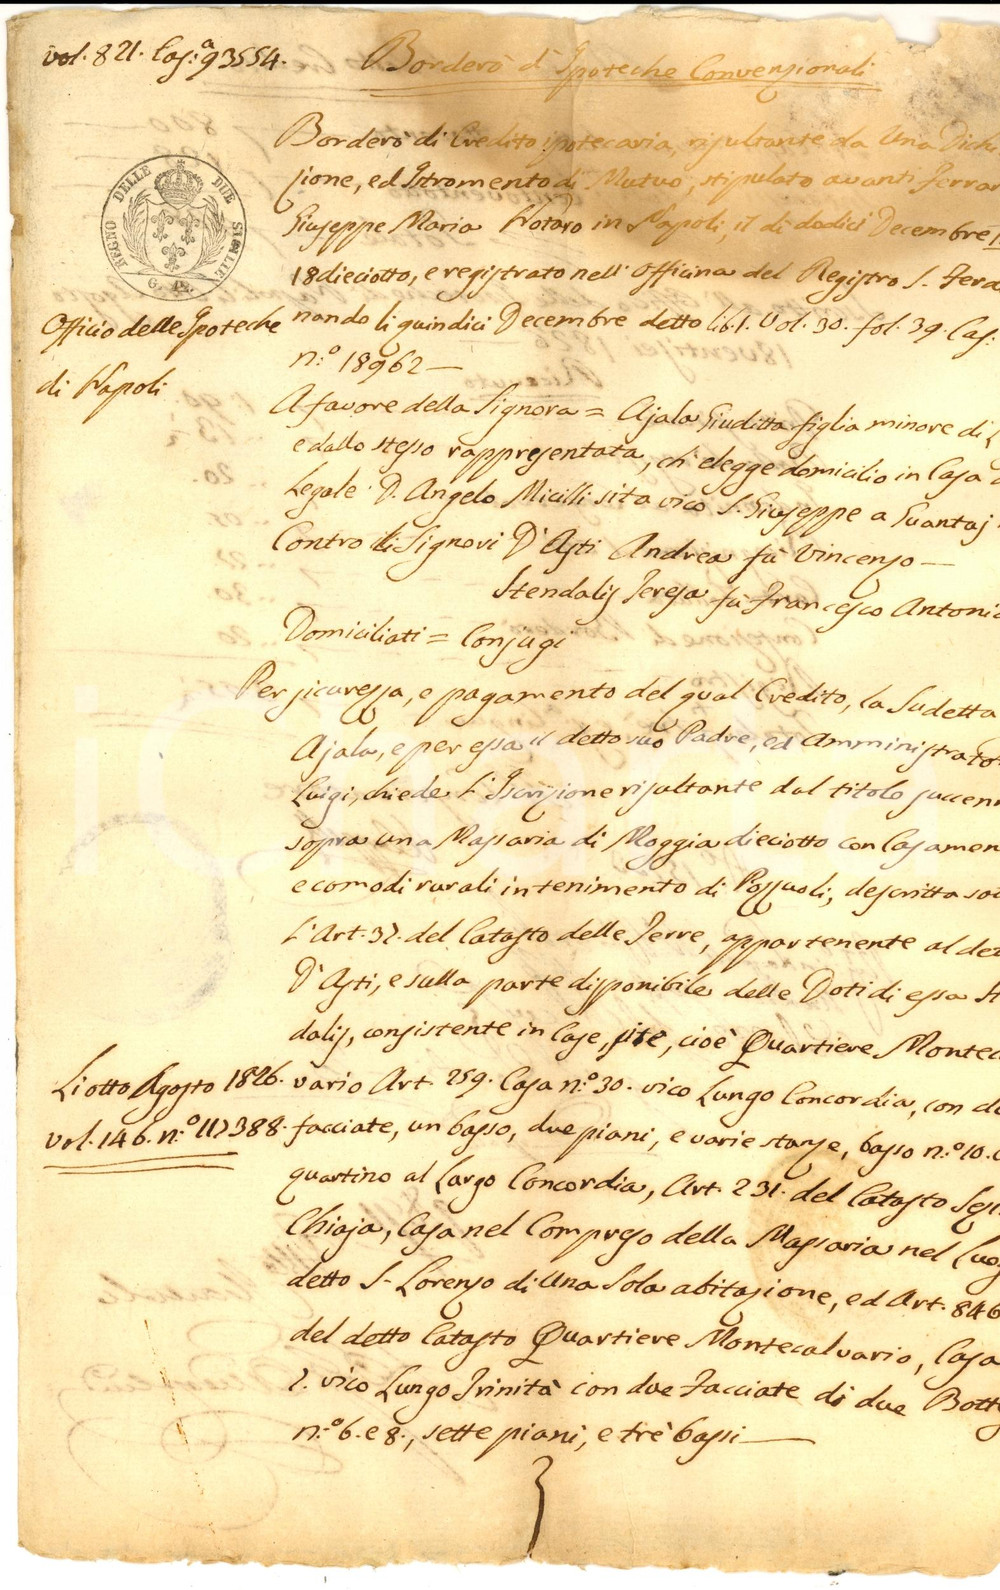 vol. 821. Cas:ª 93554.
Borderò d'Ipoteche Convenzionali
Borderò di Credito ipotecario, risultante da Una Dichi
zione, ed Istromento di Mutuo, stipulato avanti Ferrar
Giuseppe Maria Notaro in Napoli, il dì dodici Decembre
18dieciotto, e registrato nell'Officina del Registro S. Ferdi
nando li quindici Decembre detto lib. 1. Vol. 30. fol. 39. Cas:
n:º 18962 —
REGNO DELLE DUE SICILIE
Officio delle Ipoteche
di Napoli
A favore della Signora = Ajala Giuditta figlia minore di L
e dallo stesso rappresentata, ch'elegge domicilio in Casa d
Legale D. Angelo Micilli sita vico S. Giuseppe a Guantaj
Contro li Signori D'Asti Andrea fù Vincenzo —
Stendalis Teresa fù Francesco Antonio
Domiciliati = Conjugi
Per sicurezza, e pagamento del qual Credito, la Sudetta
Ajala, e per essa il detto suo Padre, ed Amministrato
Luigi, chiede l'Iscrizione risultante dal titolo succen
sopra una Massaria di Moggia dieciotto con Casamen
e comodi rurali in tenimento di Pozzuoli, descritta sot
l'Art. 37. del Catasto delle Terre, appartenente al det
D'Asti, e sulla parte disponibile delle Doti di essa St
dalis, consistente in Case, site, cioè Quartiere Montec
Li otto Agosto 1826.
vol. 146. n:º 117388.
vario Art. 259. Casa n:º 30. vico Lungo Concordia, con d
facciate, un basso, due piani, e varie stanze, basso n:º 10. e
quartino al Largo Concordia, Art. 231. del Catasto Sez
Chiaja, Casa nel Compreso della Massaria nel Luog
detto S. Lorenzo di Una Sola abitazione, ed Art. 846
del detto Catasto Quartiere Montecalvario, Casa
7. vico Lungo Trinità con due Facciate di due Botte
n:º 6. e 8., sette piani, e tre bassi —